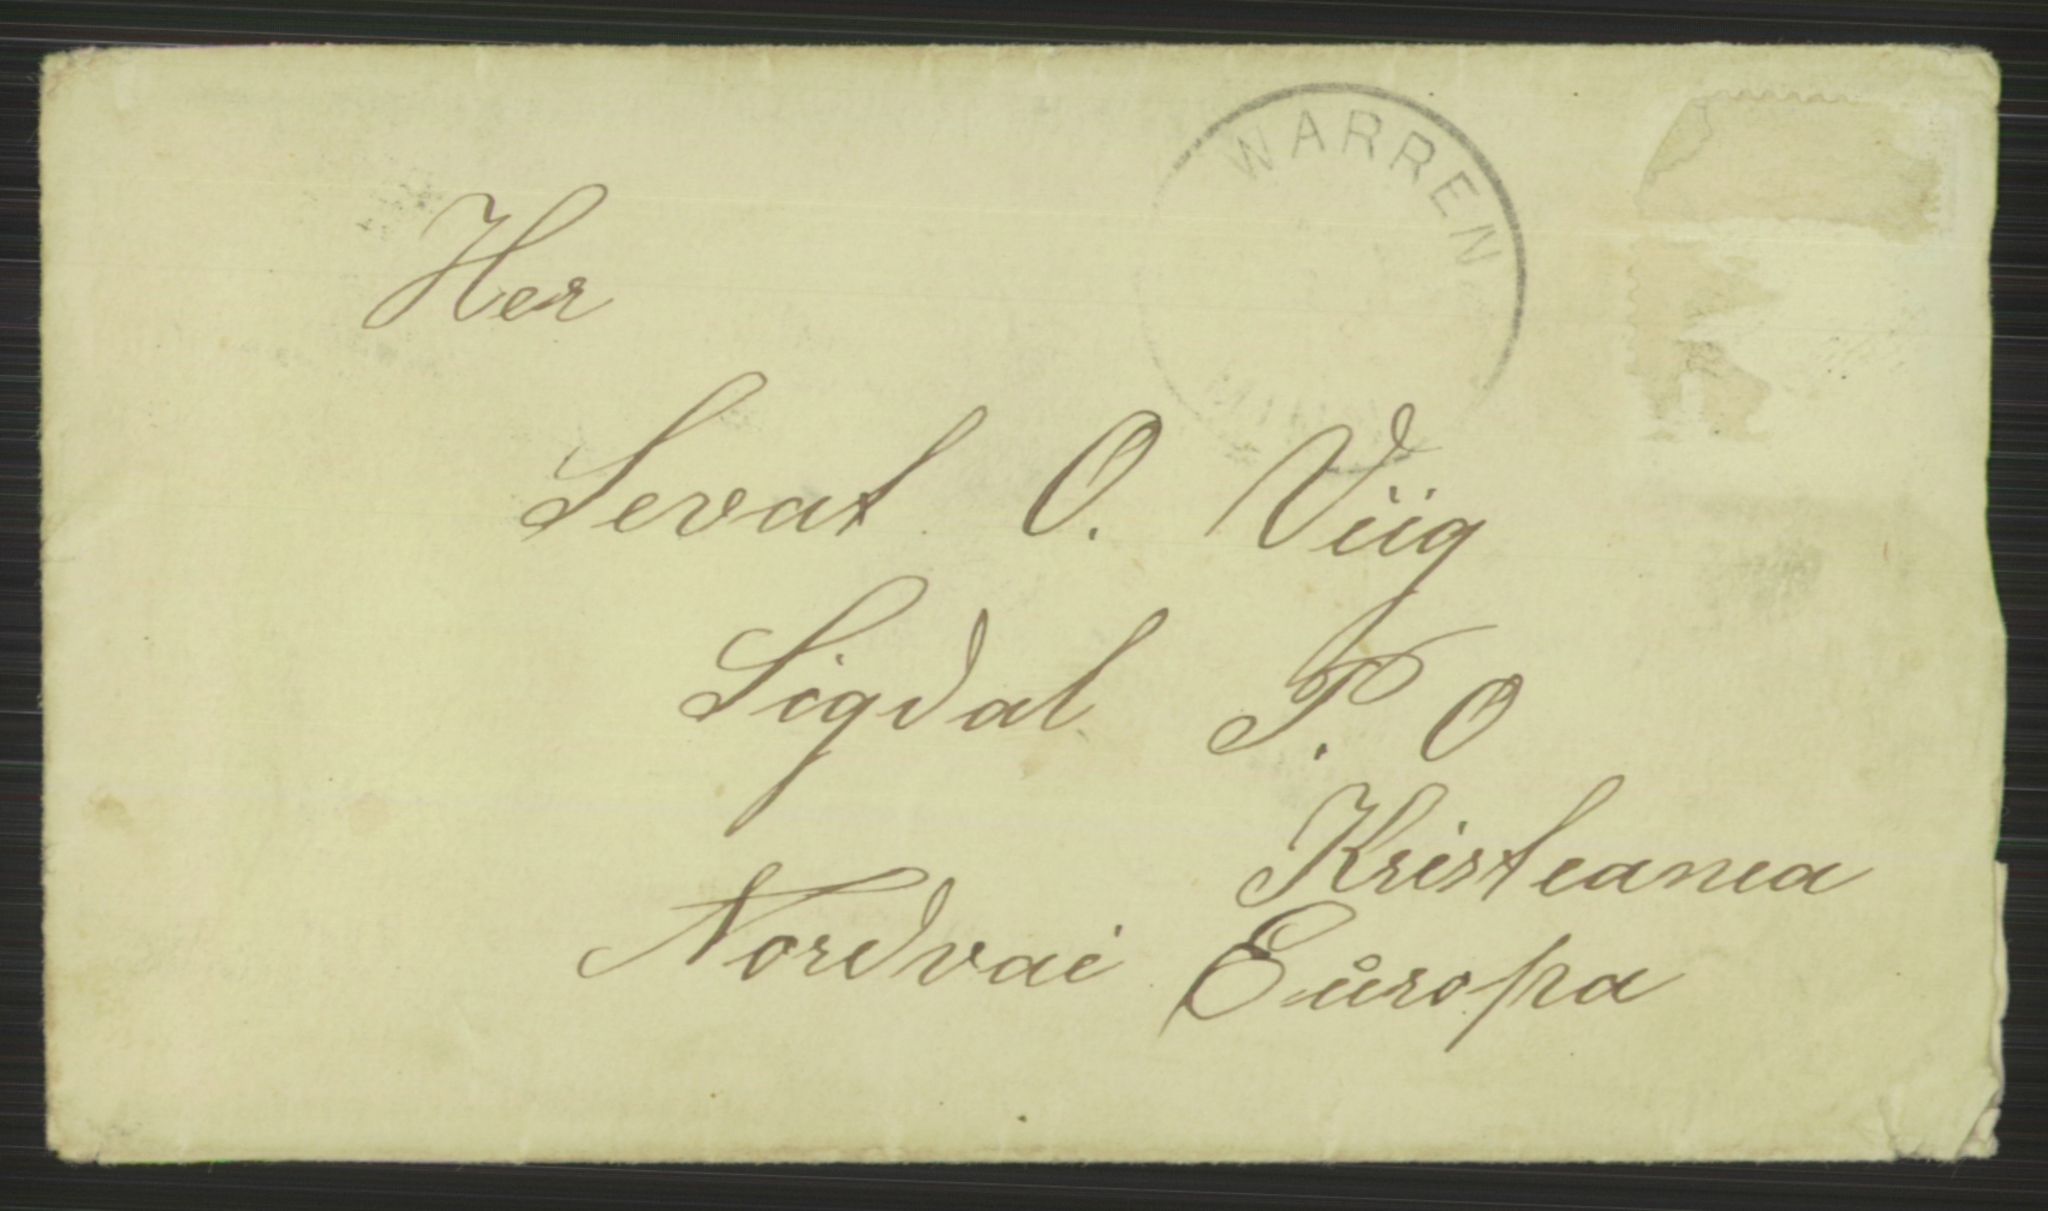 WARREN
Her
Sevat O. Viig
Sigdal P. O
Kristeania
Nordvai Eůropa